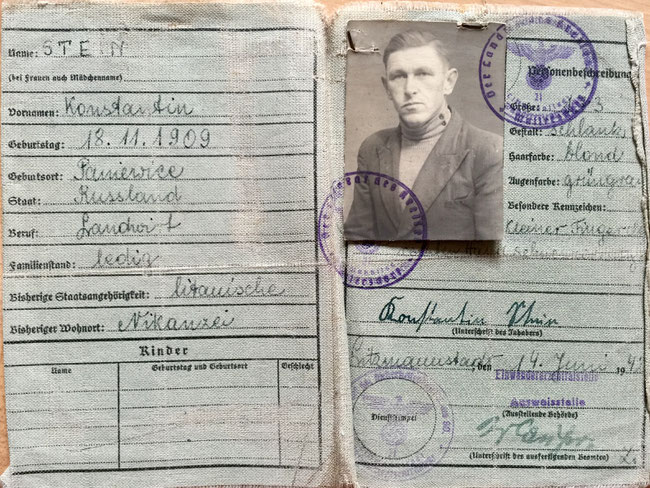 Name: STEIN
(bei Frauen auch Mädchenname)
Vornamen: Konstantin
Geburtstag: 13. 11. 1909
Geburtsort: Paniewice
Staat: Russland
Beruf: Landwirt
Familienstand: ledig
Bisherige Staatsangehörigkeit: litauische
Bisheriger Wohnort: Nikanzei
Kinder
Name Geburtstag und Geburtsort Geschlecht
Personenbeschreibung
Größe:
Gestalt: schlank
Haarfarbe: blond
Augenfarbe: grüngrau
Besondere Kennzeichen:
Kleiner Finger
Konstantin Stein
(Unterschrift des Inhabers)
Litzmannstadt, den 14. Juni 194
Einwandererzentralstelle
Ausweisstelle
(Ausstellende Behörde)
Dienststempel
(Unterschrift des ausfertigenden Beamten)